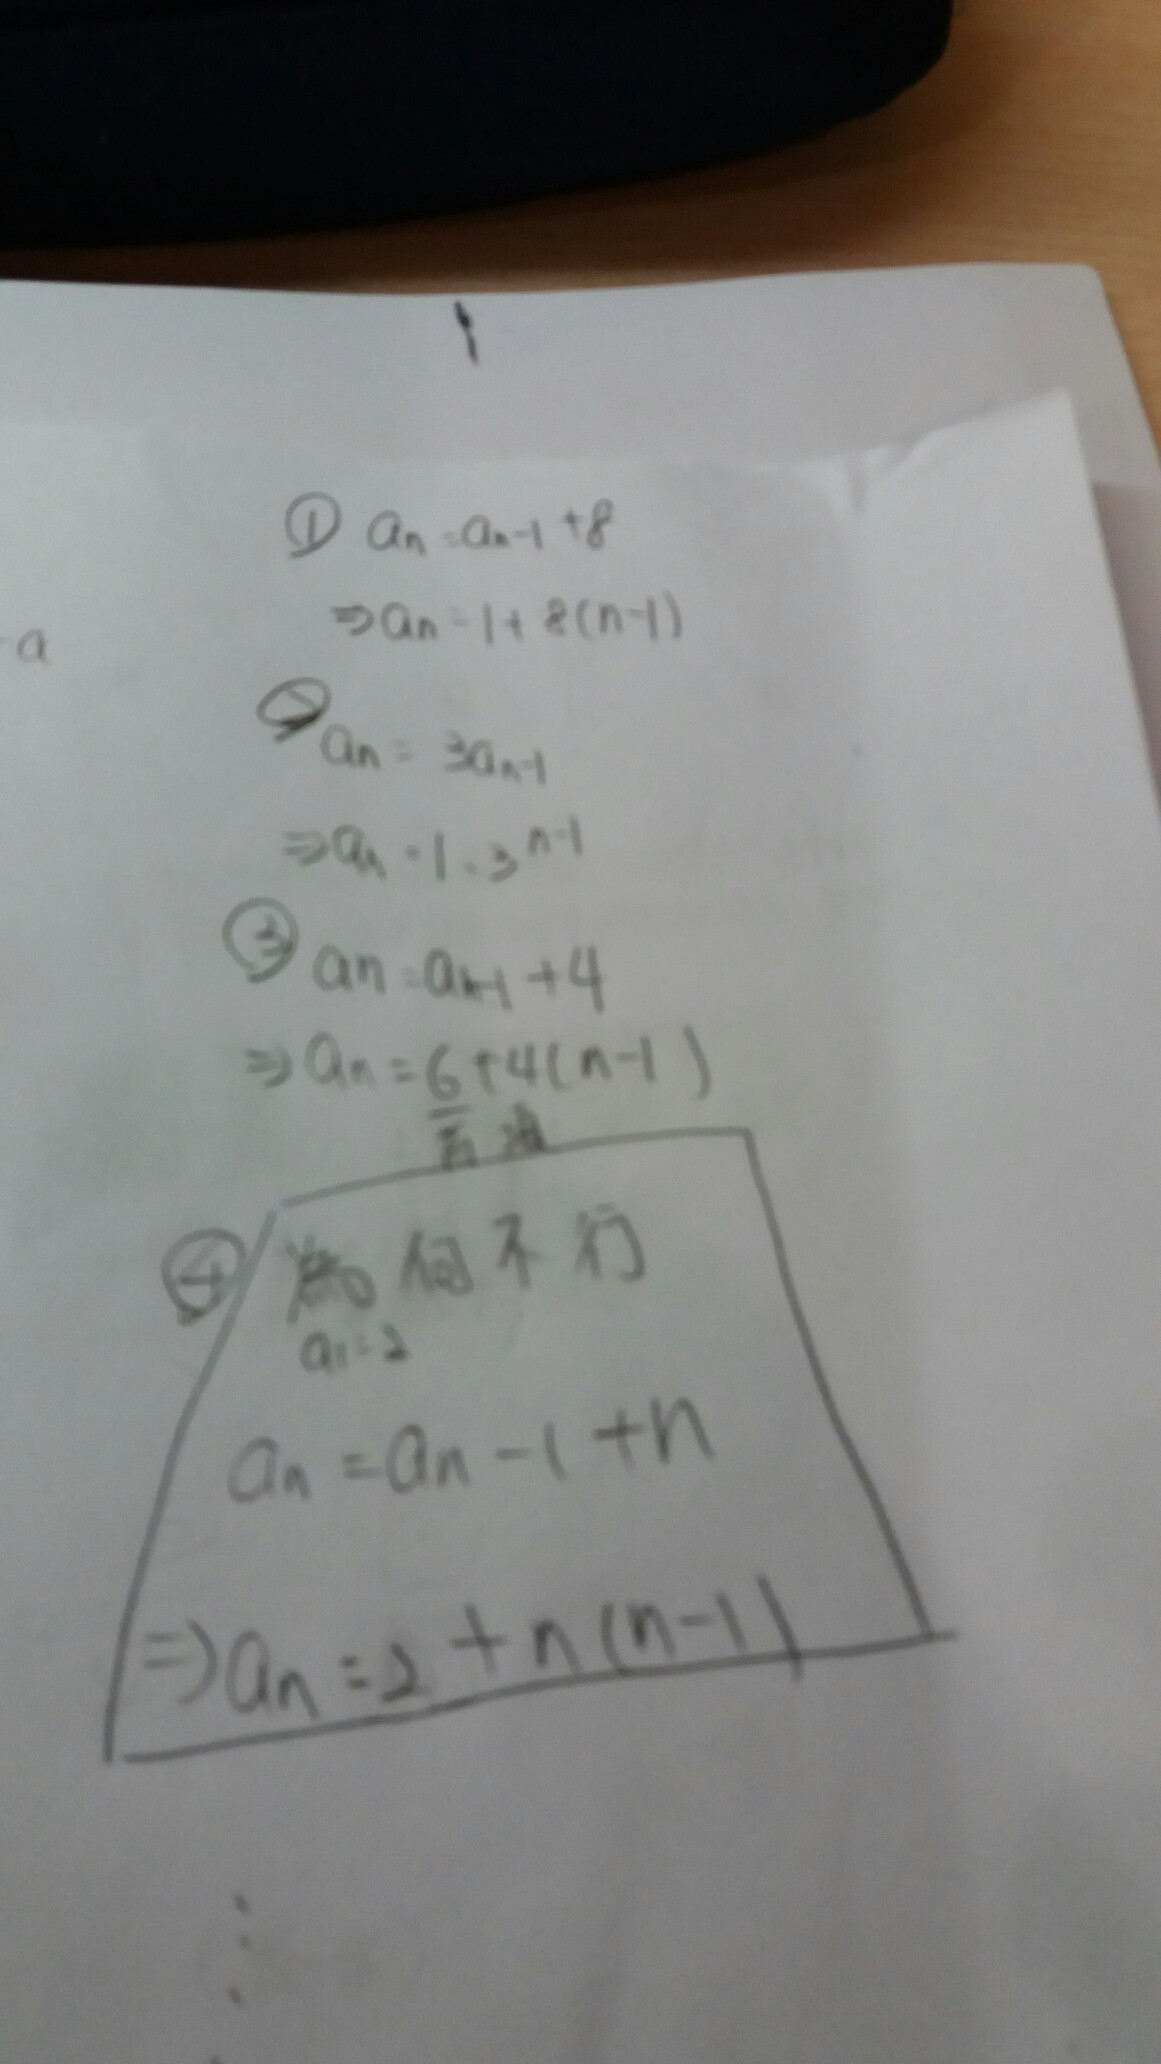 -a
① an = an-1 +8
⇒ an = 1 + 8(n-1)
② an = 3an-1
⇒ an = 1 · 3^n-1
③ an = an-1 +4
⇒ an = 6+4(n-1)
④ 為何不行
a1=2
an = an-1 +n
⇒ an = 2 + n(n-1)